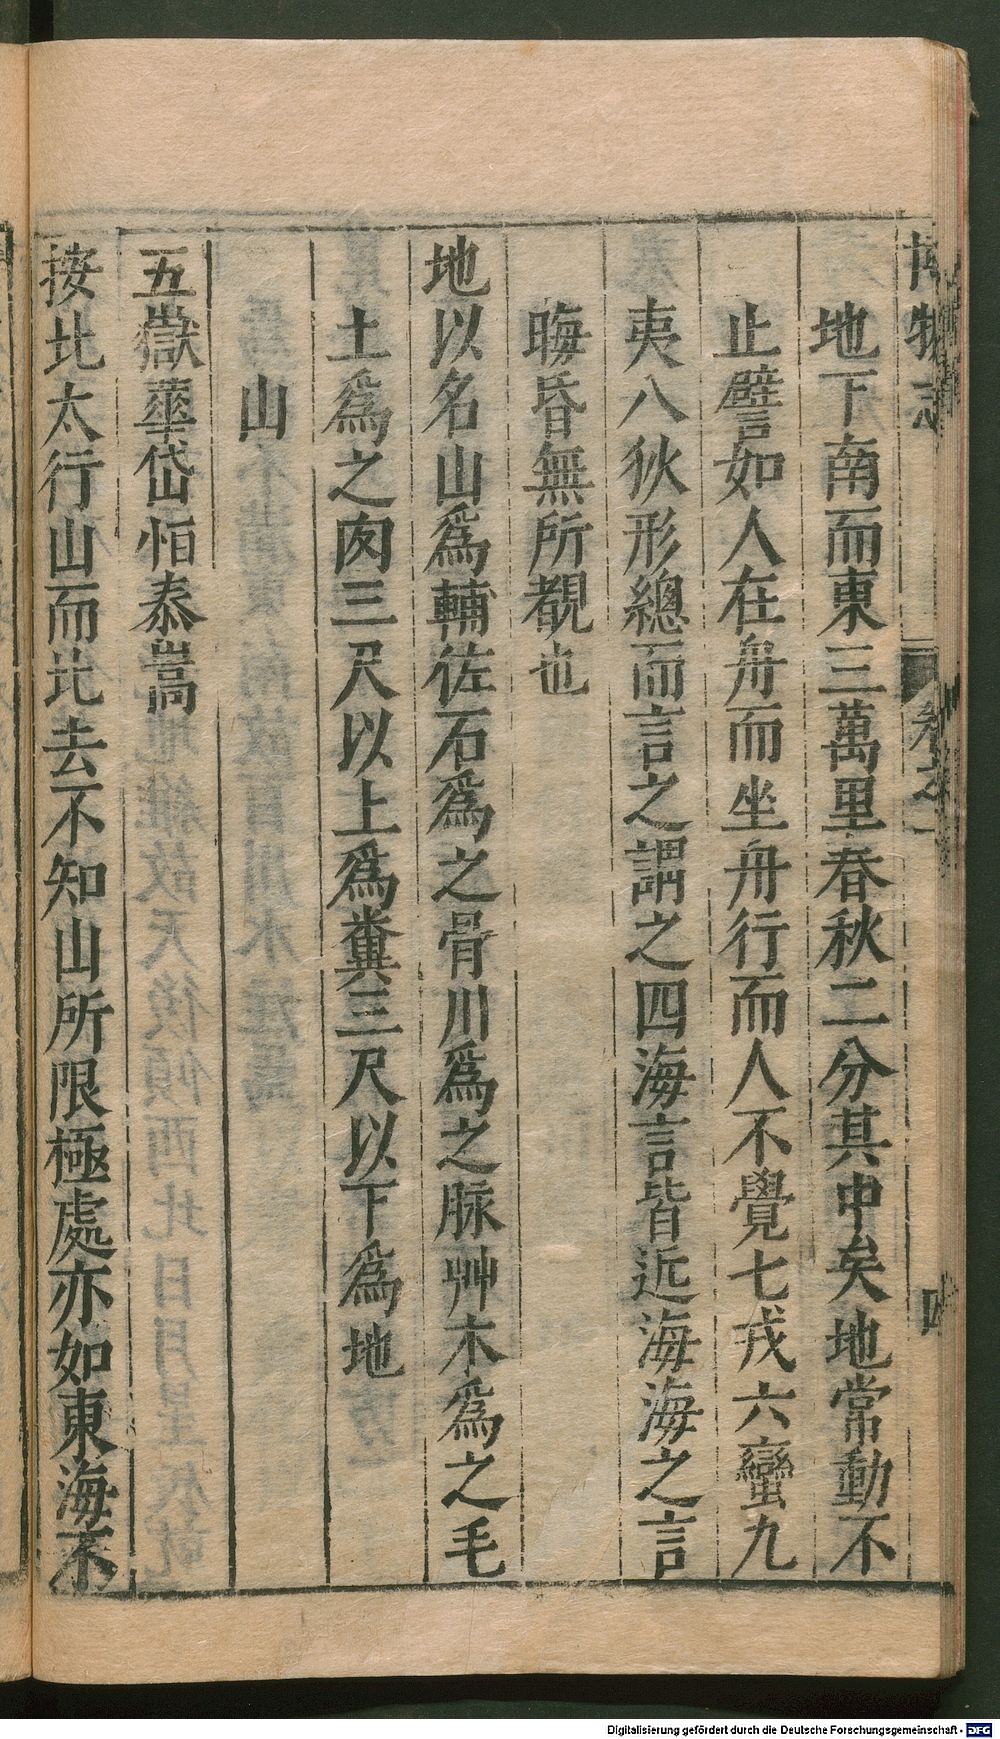 博物志 卷之一 四
地下南而東三萬里春秋二分其中矣地常動不
止譬如人在舟而坐舟行而人不覺七戎六蠻九
夷八狄形總而言之謂之四海言皆近海海之言
晦昏無所覩也
地以名山爲輔佐石爲之骨川爲之脉艸木爲之毛
土爲之肉三尺以上爲糞三尺以下爲地
山
五嶽華岱恒泰嵩
按北太行山而北去不知山所限極處亦如東海不
Digitalisierung gefördert durch die Deutsche Forschungsgemeinschaft - DFG